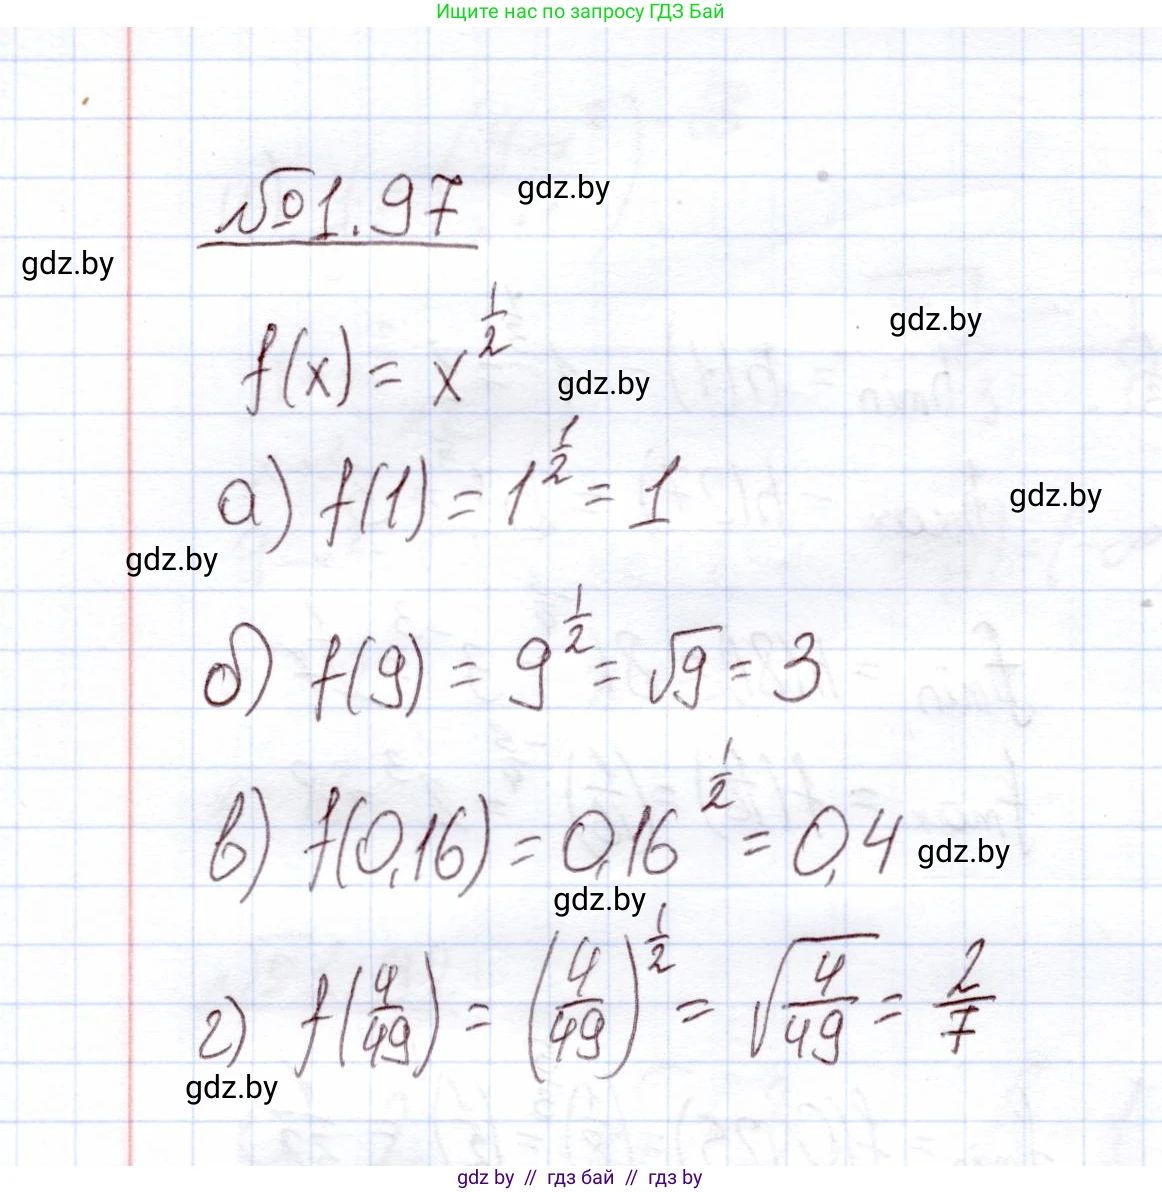 Ищите нас по запросу ГДЗ Бай
№1.97
gdz.by
gdz.by
gdz.by
f(x) = x^{1/2}
gdz.by
а) f(1) = 1^{1/2} = 1
gdz.by
gdz.by
б) f(9) = 9^{1/2} = √9 = 3
в) f(0,16) = 0,16^{1/2} = 0,4
gdz.by
gdz.by
г) f(4/49) = (4/49)^{1/2} = √(4/49) = 2/7
gdz.by
gdz by // гдз бай // гдз by